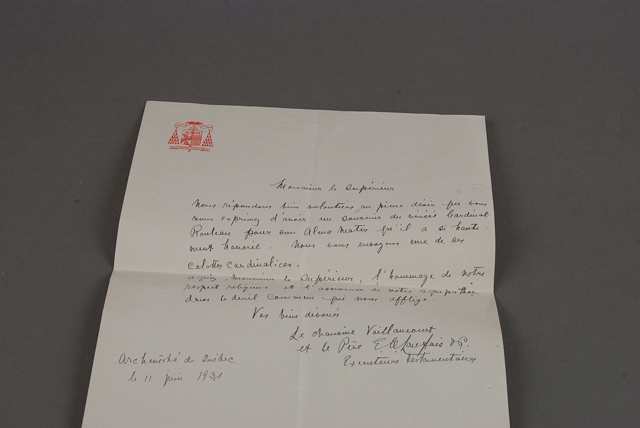 Monsieur le Supérieur
Nous répondons bien volontiers au pieux désir que vous
nous exprimez d'avoir un souvenir du vénéré Cardinal
Rouleau pour son Alma Mater qu'il a si haute-
ment honoré. Nous vous envoyons une de ses
calottes cardinalices.
Agréez, Monsieur le Supérieur, l'hommage de notre
respect religieux et l'assurance de notre sympathie
dans le deuil commun qui nous afflige.
Vos bien dévoués
Le chanoine Vaillancourt
et le Père
Exécuteurs testamentaires
Archevêché de Québec
le 11 juin 1931